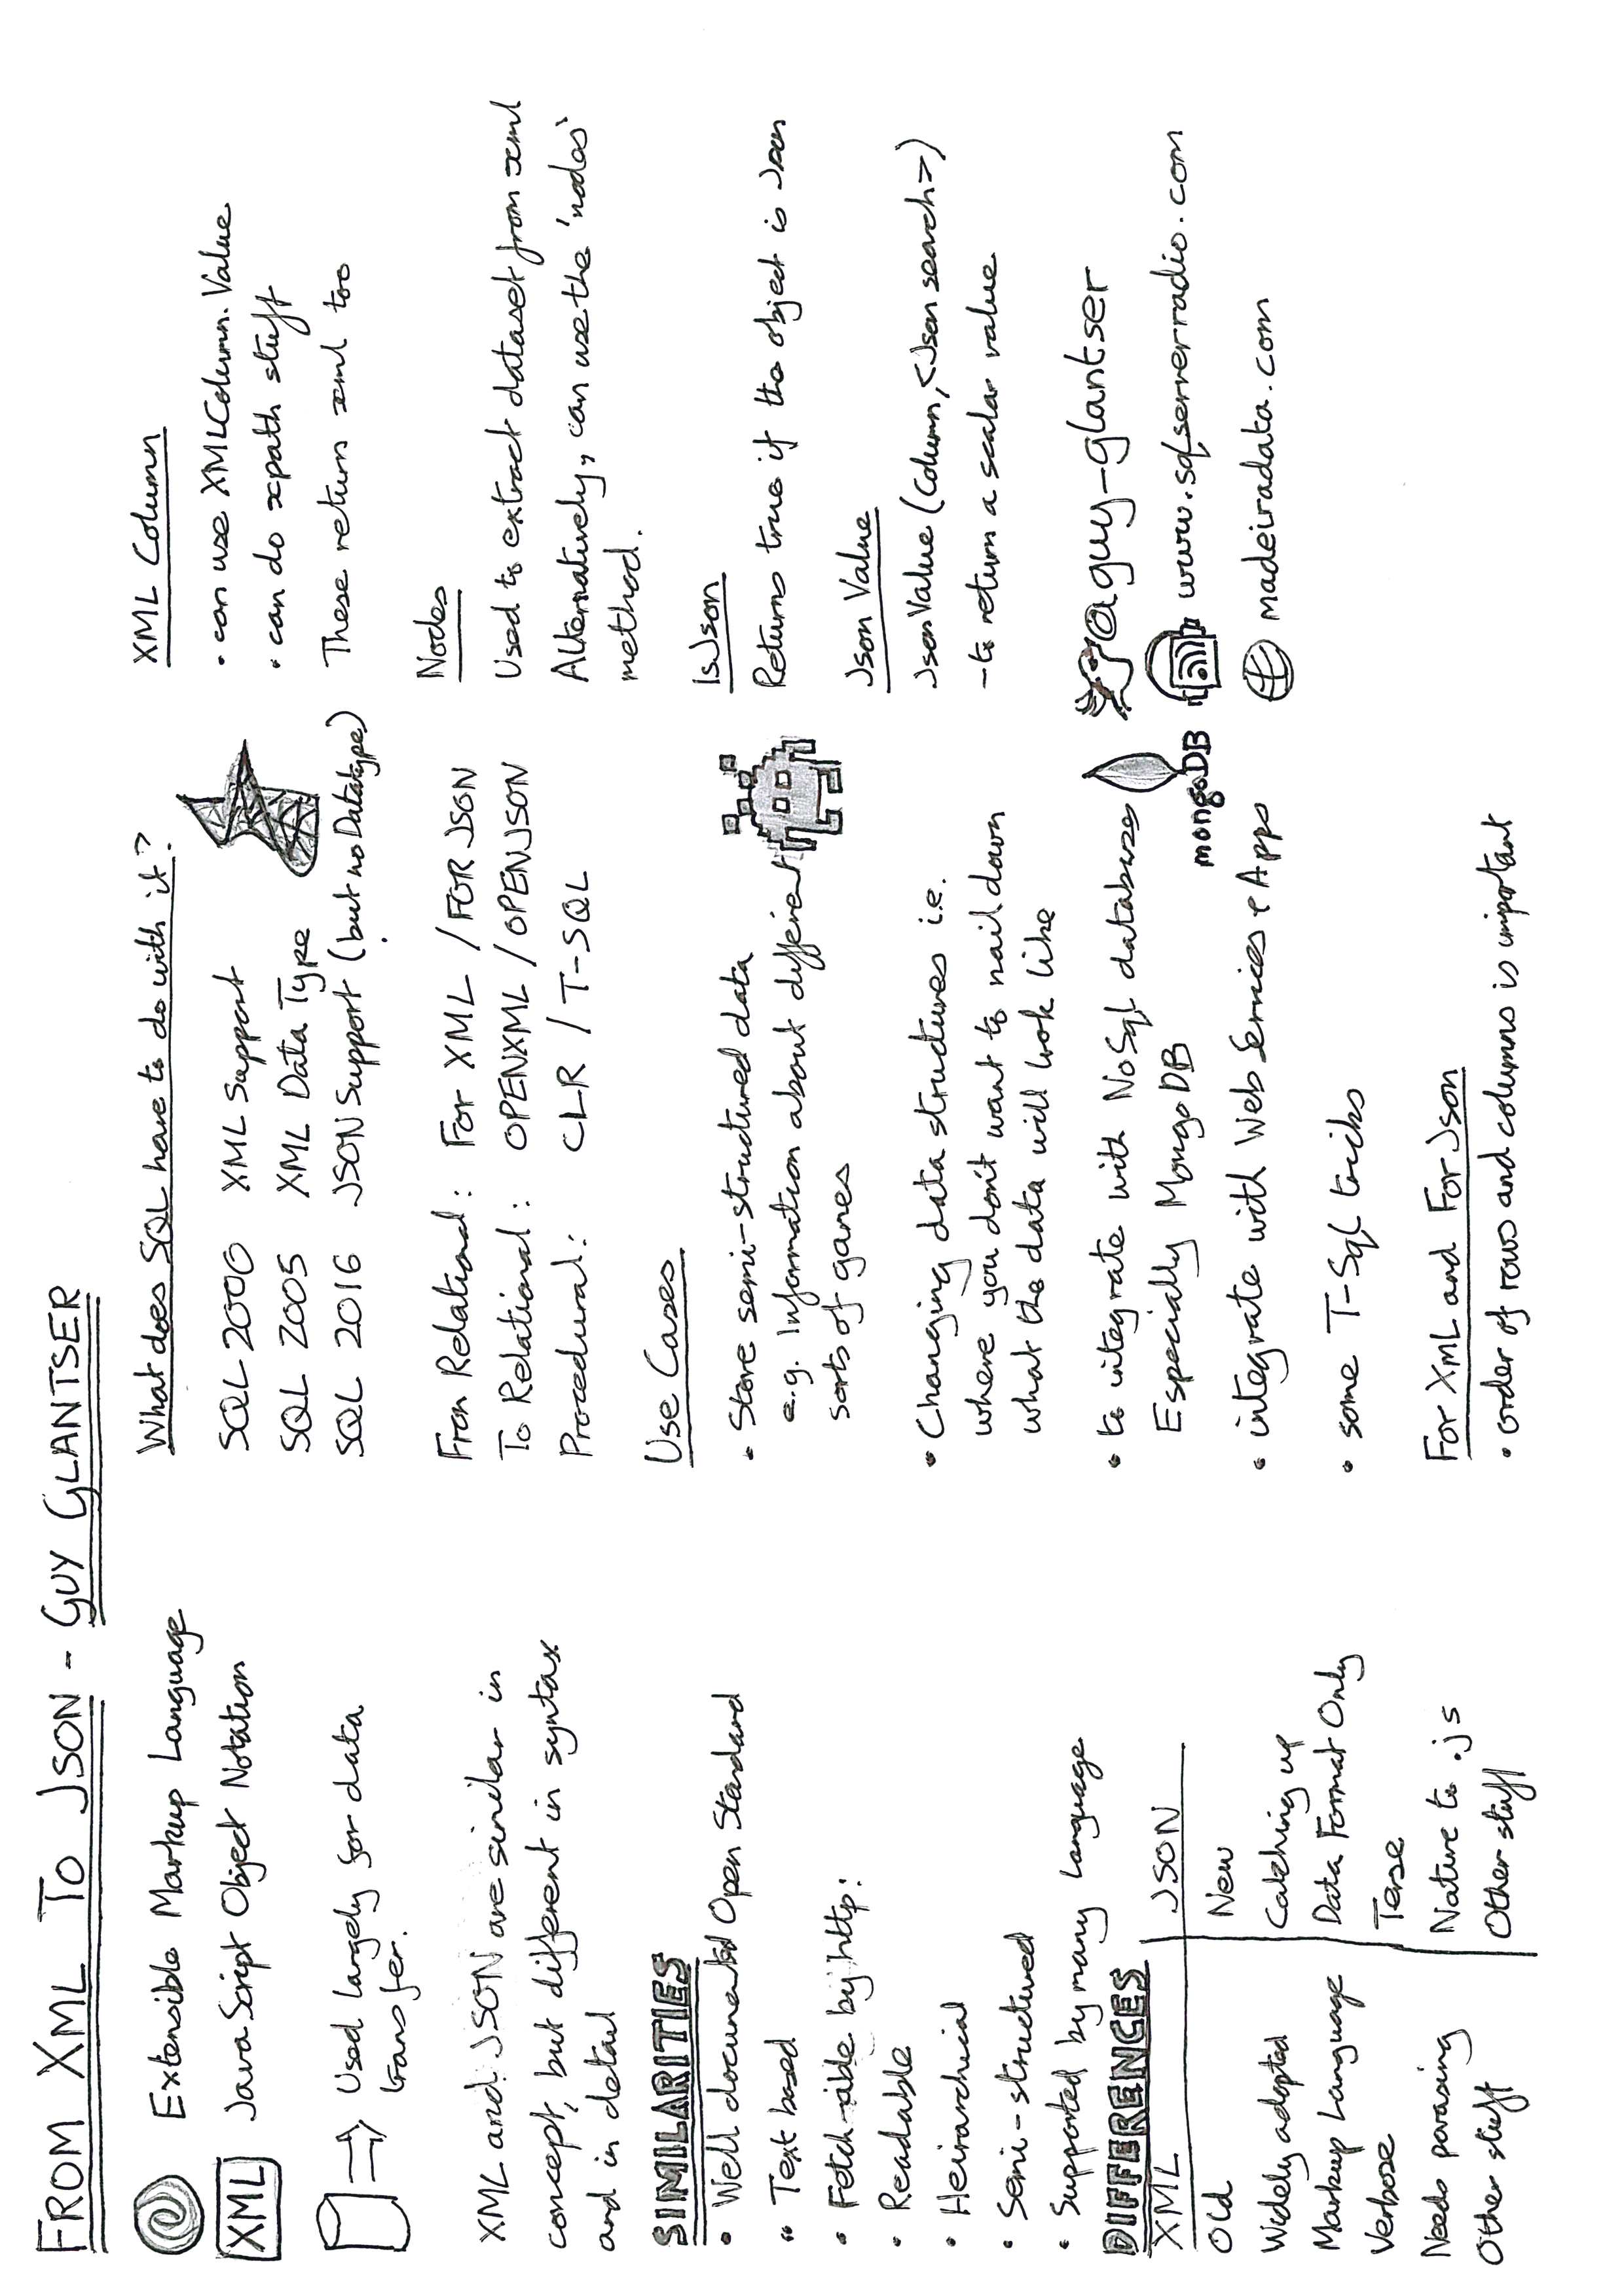 FROM XML TO JSON - GUY GLANTSER
Extensible Markup Language
XML
JavaScript Object Notation
Used largely for data
transfer.
XML and JSON are similar in
concept, but different in syntax
and in detail
SIMILARITIES
• Well documented Open Standard
• Text based
• Fetch-able by http:
• Readable
• Heirarchical
• Semi-structured
• Supported by many language
DIFFERENCES
XML JSON
Old New
Widely adopted Catching up
Markup Language Data Format Only
Verbose Terse
Needs parasing Nature to .js
Other stuff Other stuff
What does SQL have to do with it?
SQL 2000 XML Support
SQL 2005 XML Data Type
SQL 2016 JSON Support (but no Datatype)
From Relational: For XML / FOR JSON
To Relational: OPENXML / OPENJSON
Procedural: CLR / T-SQL
Use Cases
• Store semi-structured data
e.g. Information about different
sorts of games
• Changing data structures i.e.
where you don't want to nail down
what the data will look like
• to integrate with NoSql databases
Especially MongoDB
mongoDB
• integrate with Web Services & Apps
• some T-Sql tricks
For XML and For Json
• order of rows and columns is important
XML Column
• can use XMLColumn.Value
• can do xpath stuff
These return xml too
Nodes
Used to extract dataset from xml
Alternatively, can use the 'nodes'
method.
IsJson
Returns true if the object is Json
Json Value
JsonValue (Column, <Json search>)
- to return a scalar value
@guy_glantser
www.sqlserverradio.com
madeiradata.com